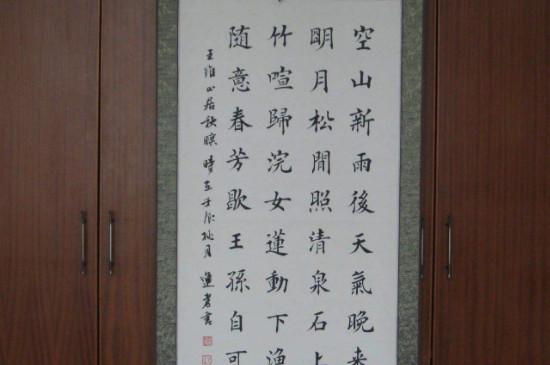 空山新雨後天氣晚来
明月松間照清泉石上
竹喧歸浣女蓮動下漁
随意春芳歇王孫自可
王維山居秋暝時在壬辰桃月